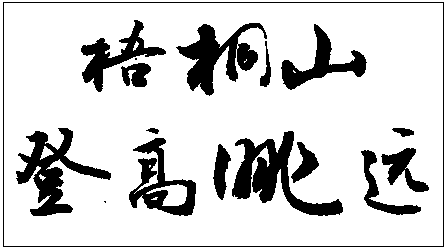 梧桐山
登高眺远